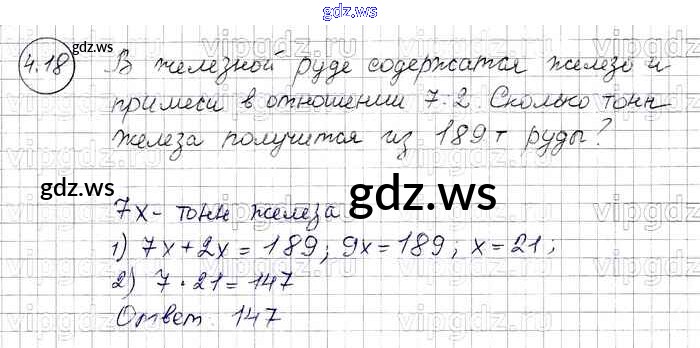 gdz.ws
4.18 В железной руде содержатся железо и
gdz.ws
примеси в отношении 7:2. Сколько тонн
железа получится из 189 т руды?
gdz.ws
gdz.ws
7x - тонн железа
1) 7x+2x = 189; 9x=189; x=21;
2) 7 · 21 = 147
Ответ 147
gdz.ws